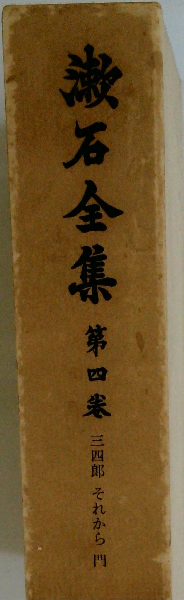 漱石全集
第四巻
三四郎 それから 門